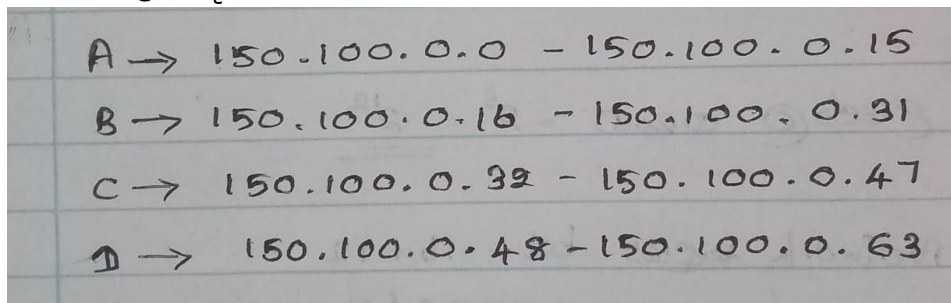 A → 150.100.0.0 - 150.100.0.15
B → 150.100.0.16 - 150.100.0.31
C → 150.100.0.32 - 150.100.0.47
D → 150.100.0.48 - 150.100.0.63